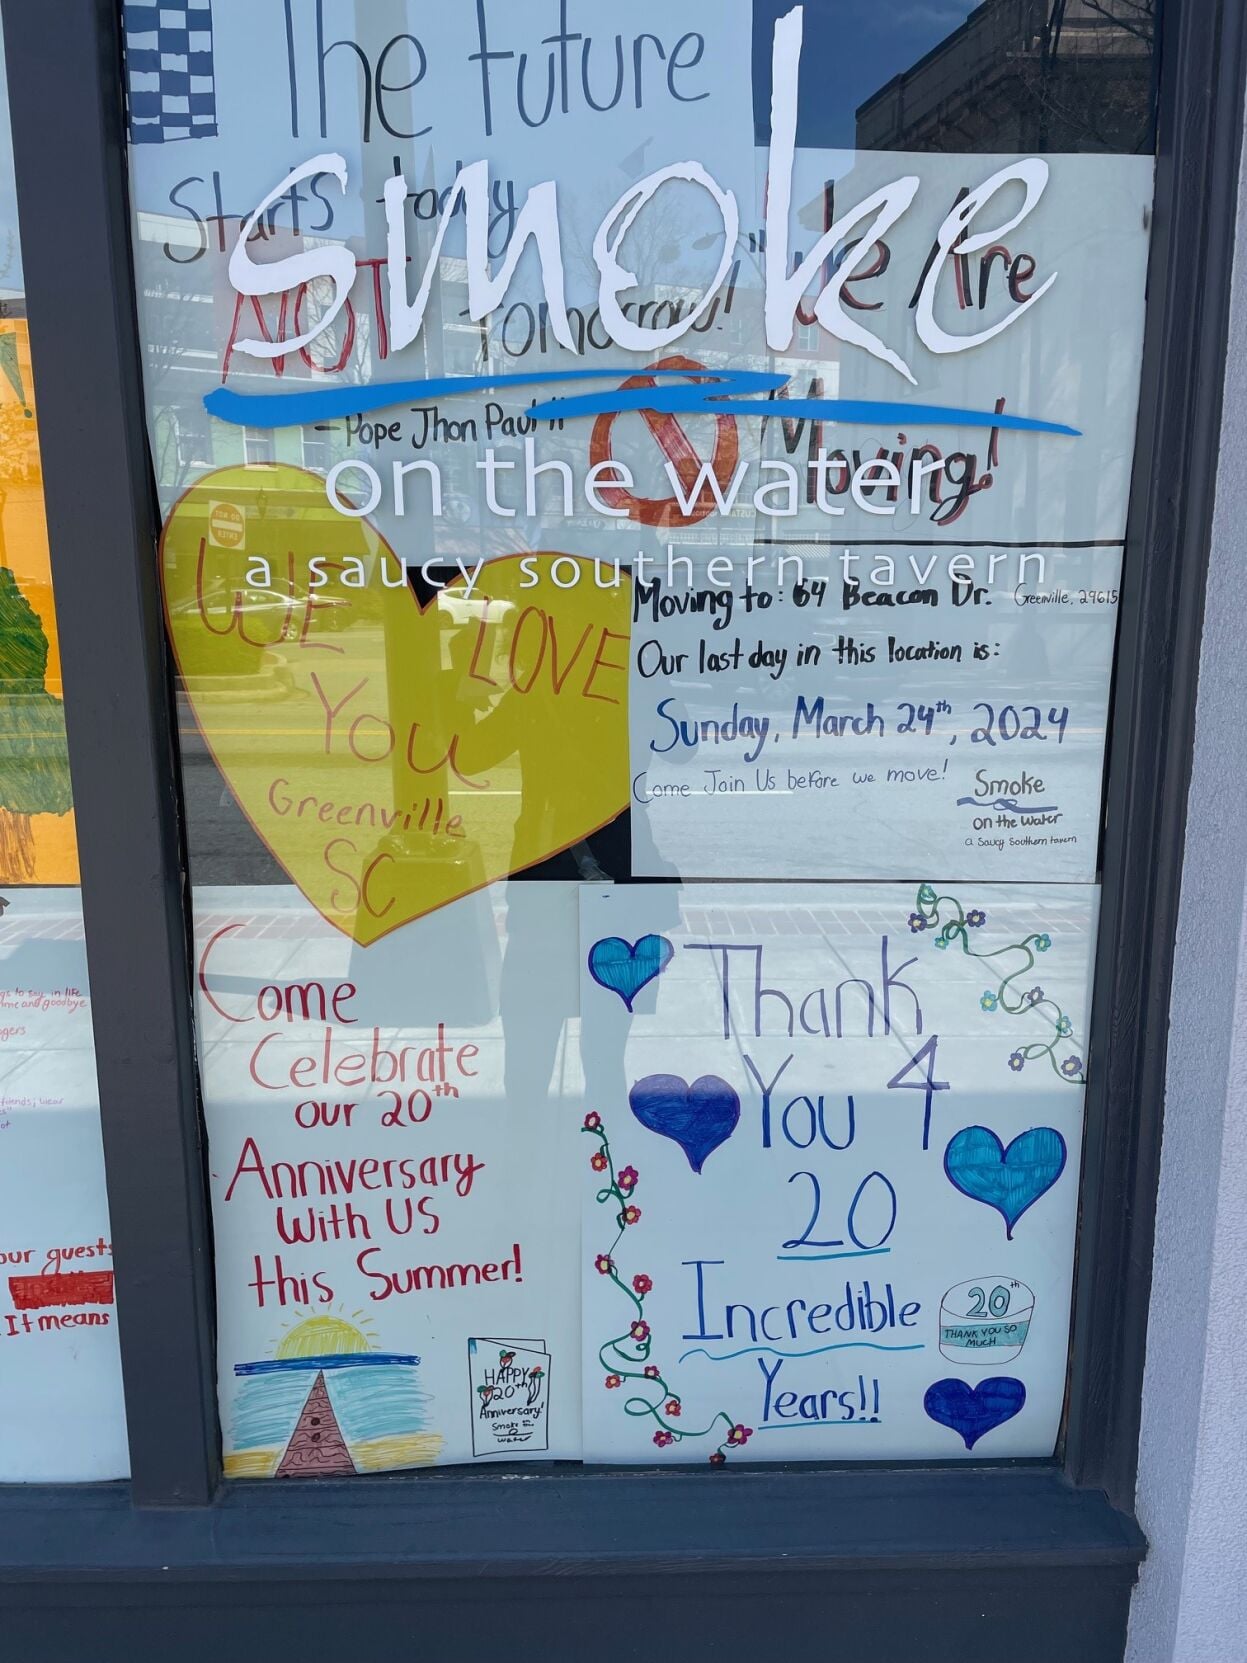 The future
Starts today
NOT tomorrow!"
- Pope Jhon Paul II
smoke
on the water
a saucy southern tavern
We Are
Moving!
DO NOT
ENTER
WE LOVE
You
Greenville
SC
Moving to: 64 Beacon Dr. Greenville, 29615
Our last day in this location is:
Sunday, March 24th, 2024
Come Join Us before we move!
Smoke
on the water
a Saucy Southern tavern
Come
Celebrate
our 20th
Anniversary
With US
this Summer!
HAPPY
20th
Anniversary!
Smoke on
Water
Thank
You 4
20
Incredible
Years!!
20th
THANK YOU SO
MUCH
to say in life
me and goodbye
friends, wear
our guests
It means